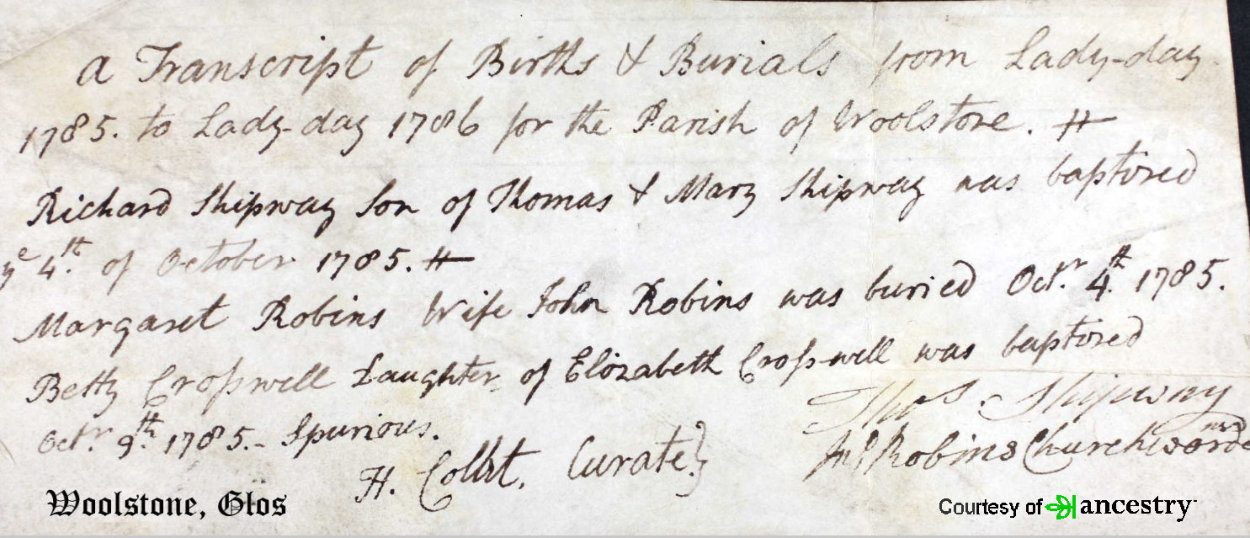 A Transcript of Births & Burials from Lady-day
1785. to Lady-day 1786 for the Parish of Woolstone. #
Richard Shipway Son of Thomas & Mary Shipway was baptized
ye 4th. of October 1785. #
Margaret Robins Wife John Robins was buried Octr. 4th. 1785.
Betty Croſswell Daughter of Elizabeth Croſs-well was baptized
Octr. 9th. 1785.- Spurious.
Thos. Shipway
H. Collet, Curate
Jno Robins Churchwardens
Woolstone, Glos
Courtesy of ancestry